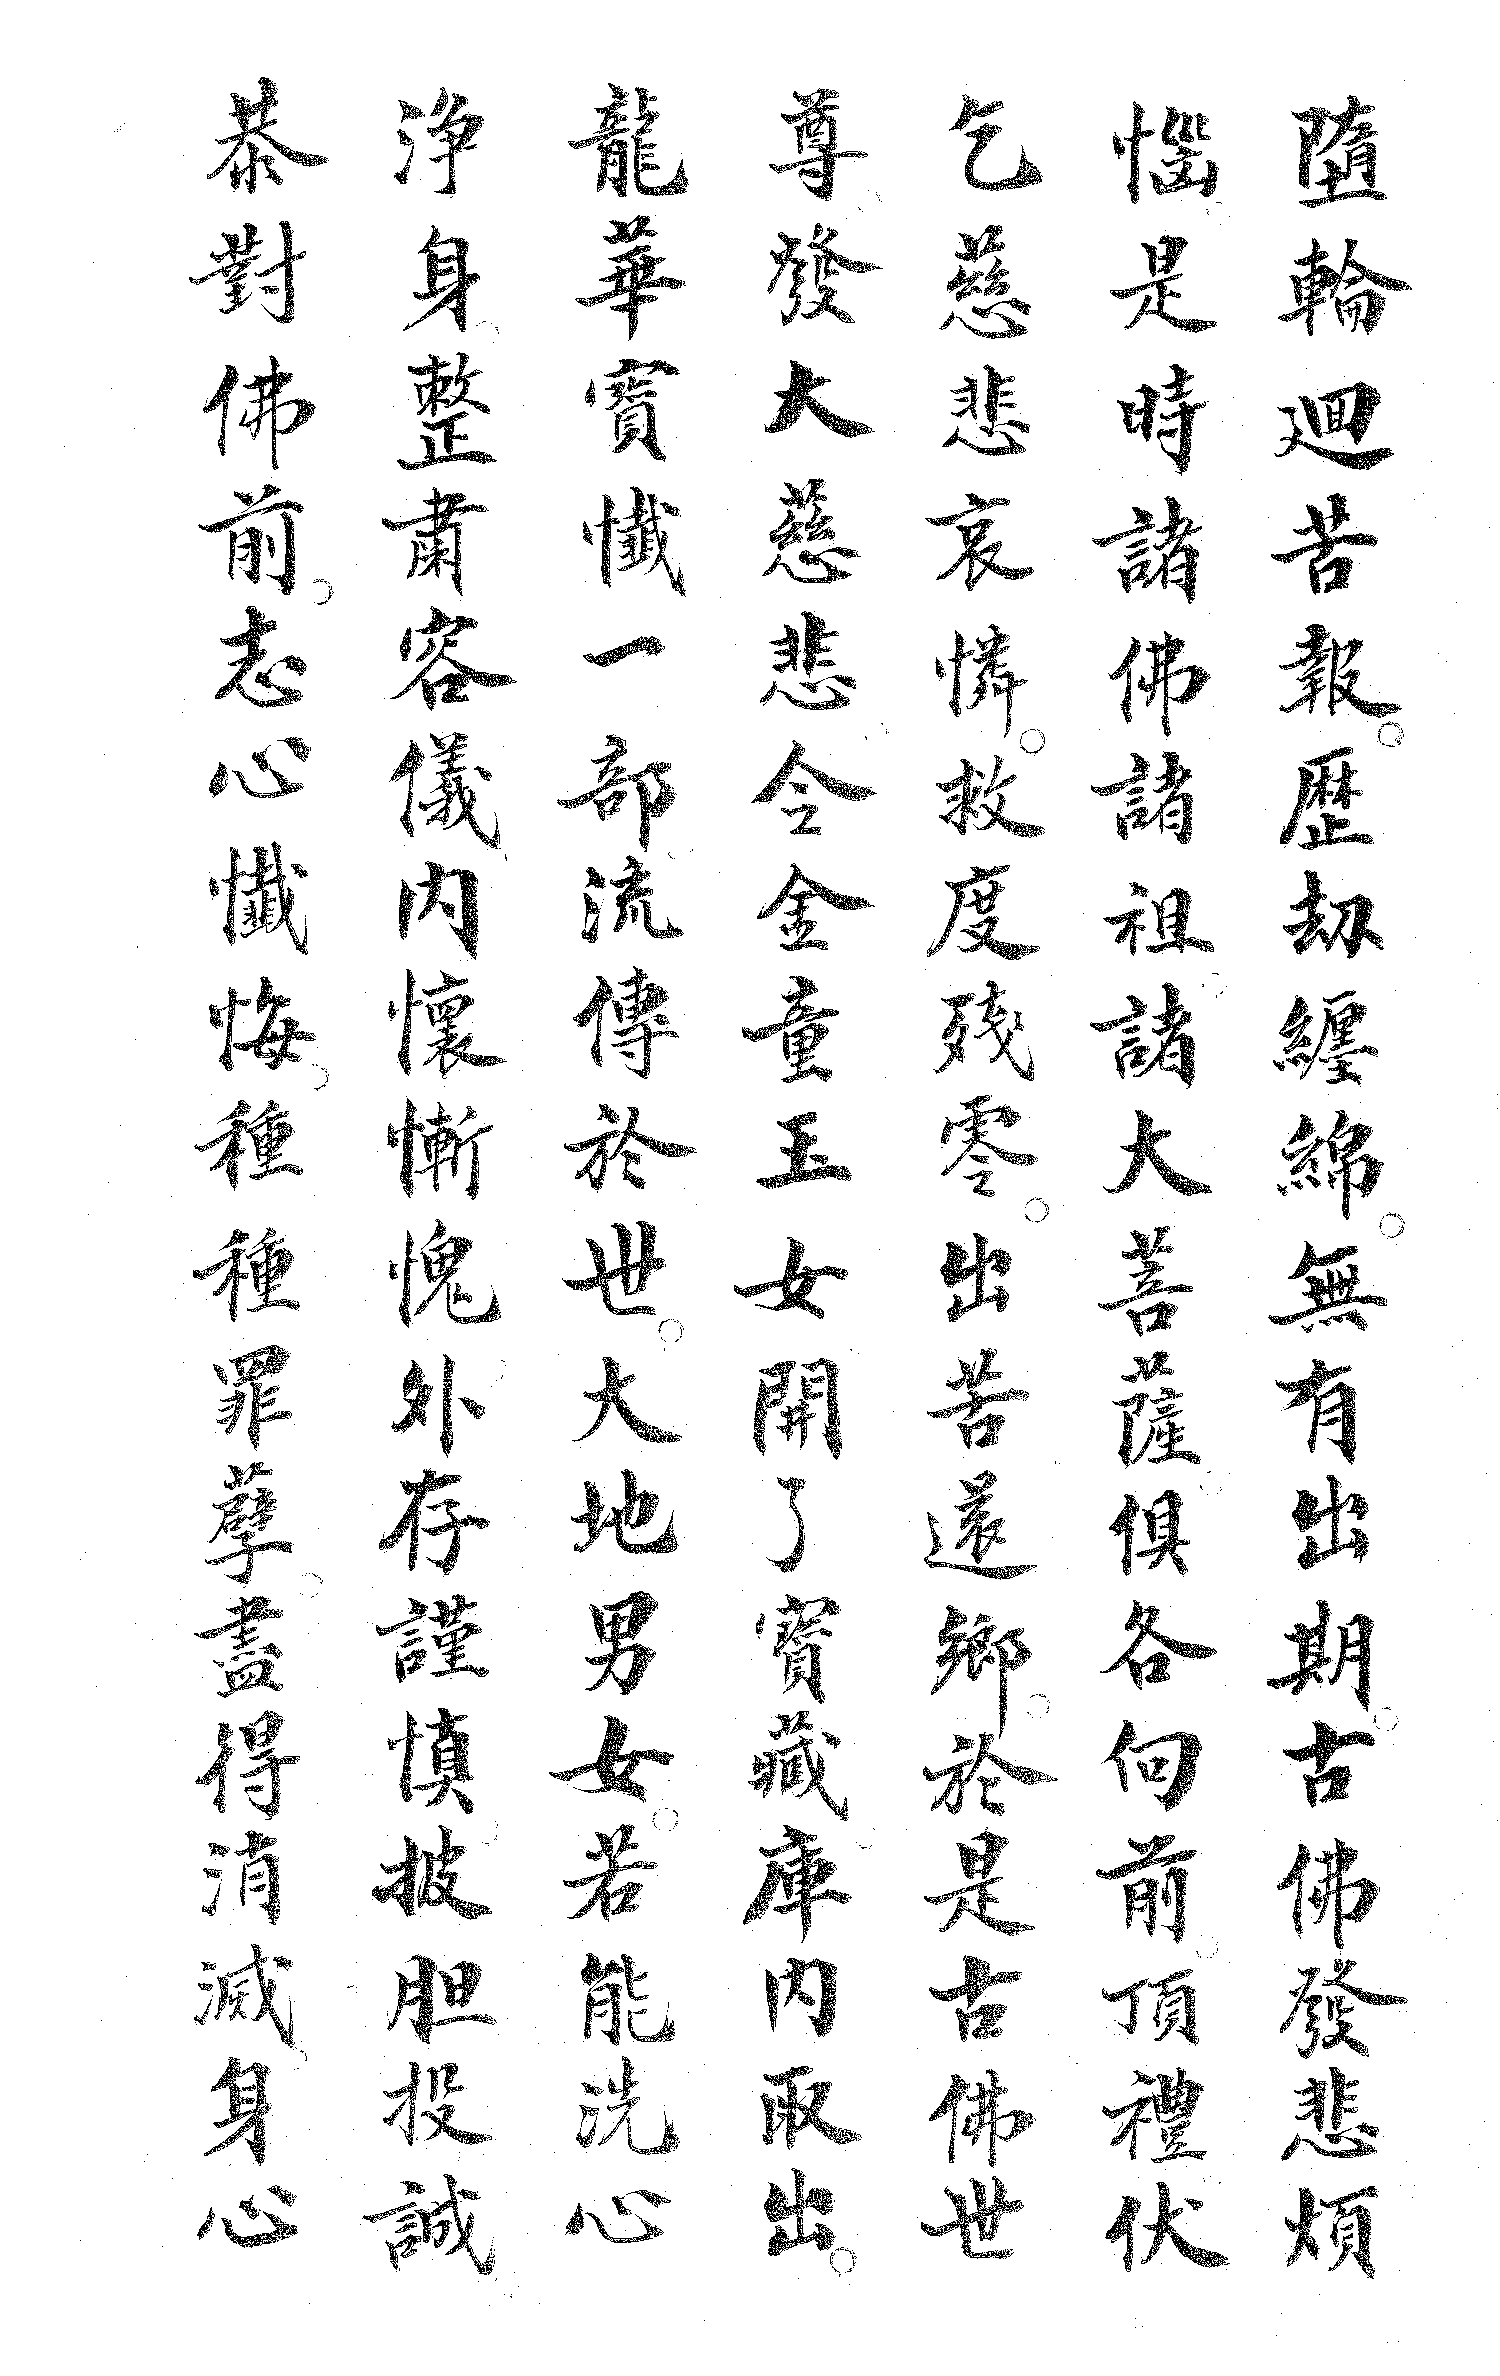 墮輪迴苦報。歷劫纏綿。無有出期。古佛發悲煩
惱。是時諸佛諸祖。諸大菩薩。俱各向前。頂禮伏
乞慈悲哀憐。救度殘零。出苦還鄉。於是古佛世
尊。發大慈悲。令金童玉女開了寶藏庫。内取出。
龍華寶懺一部。流傳於世。大地男女。若能洗心
淨身。整肅容儀。内懷慚愧。外存謹慎。披胆投誠
恭對佛前。志心懺悔。種種罪孽。盡得消滅。身心